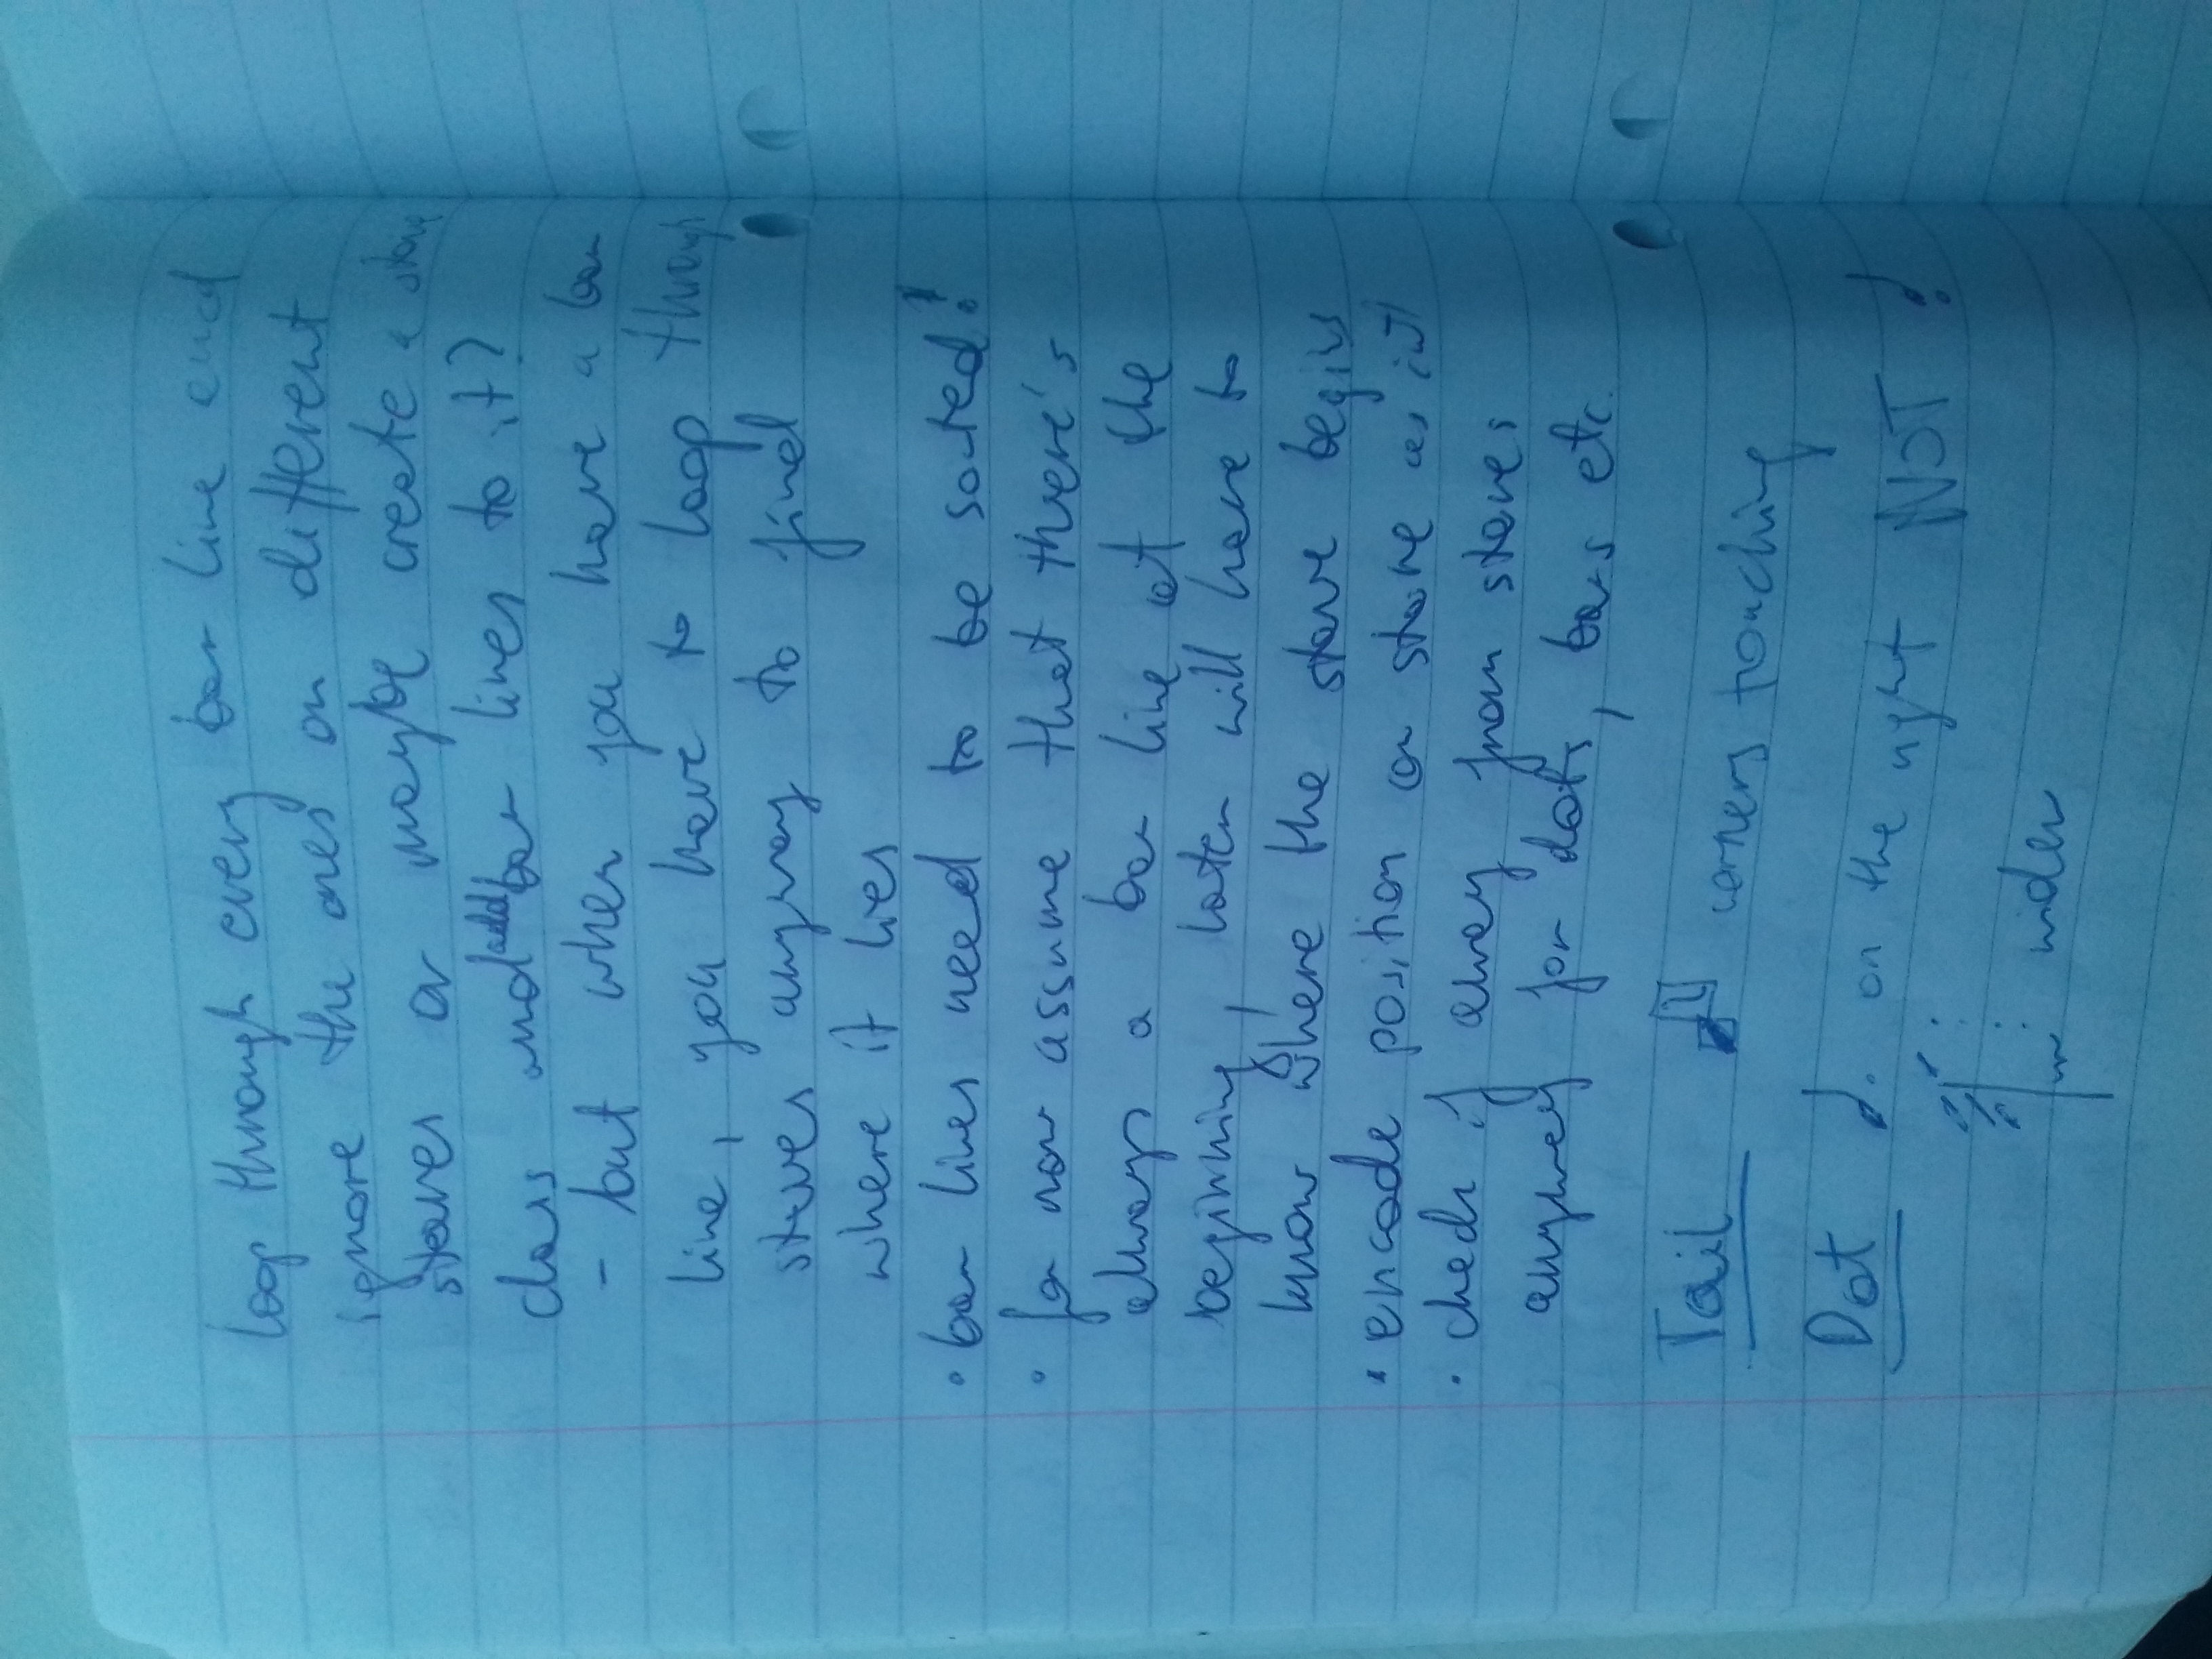 loop through every bar line and
ignore the ones on different
staves or maybe create a stave
class and add bar lines to it?
- but when you have a bar
line, you have to loop through
staves anyway to find
where it lies
• bar lines need to be sorted!
• for now assume that there's
always a bar line at the
beginning, later will have to
know where the stave begins
• encode position on stave as int
• check if away from staves
anyway for dots, bars etc.
Tail corners touching
Dot on the right NOT
wider